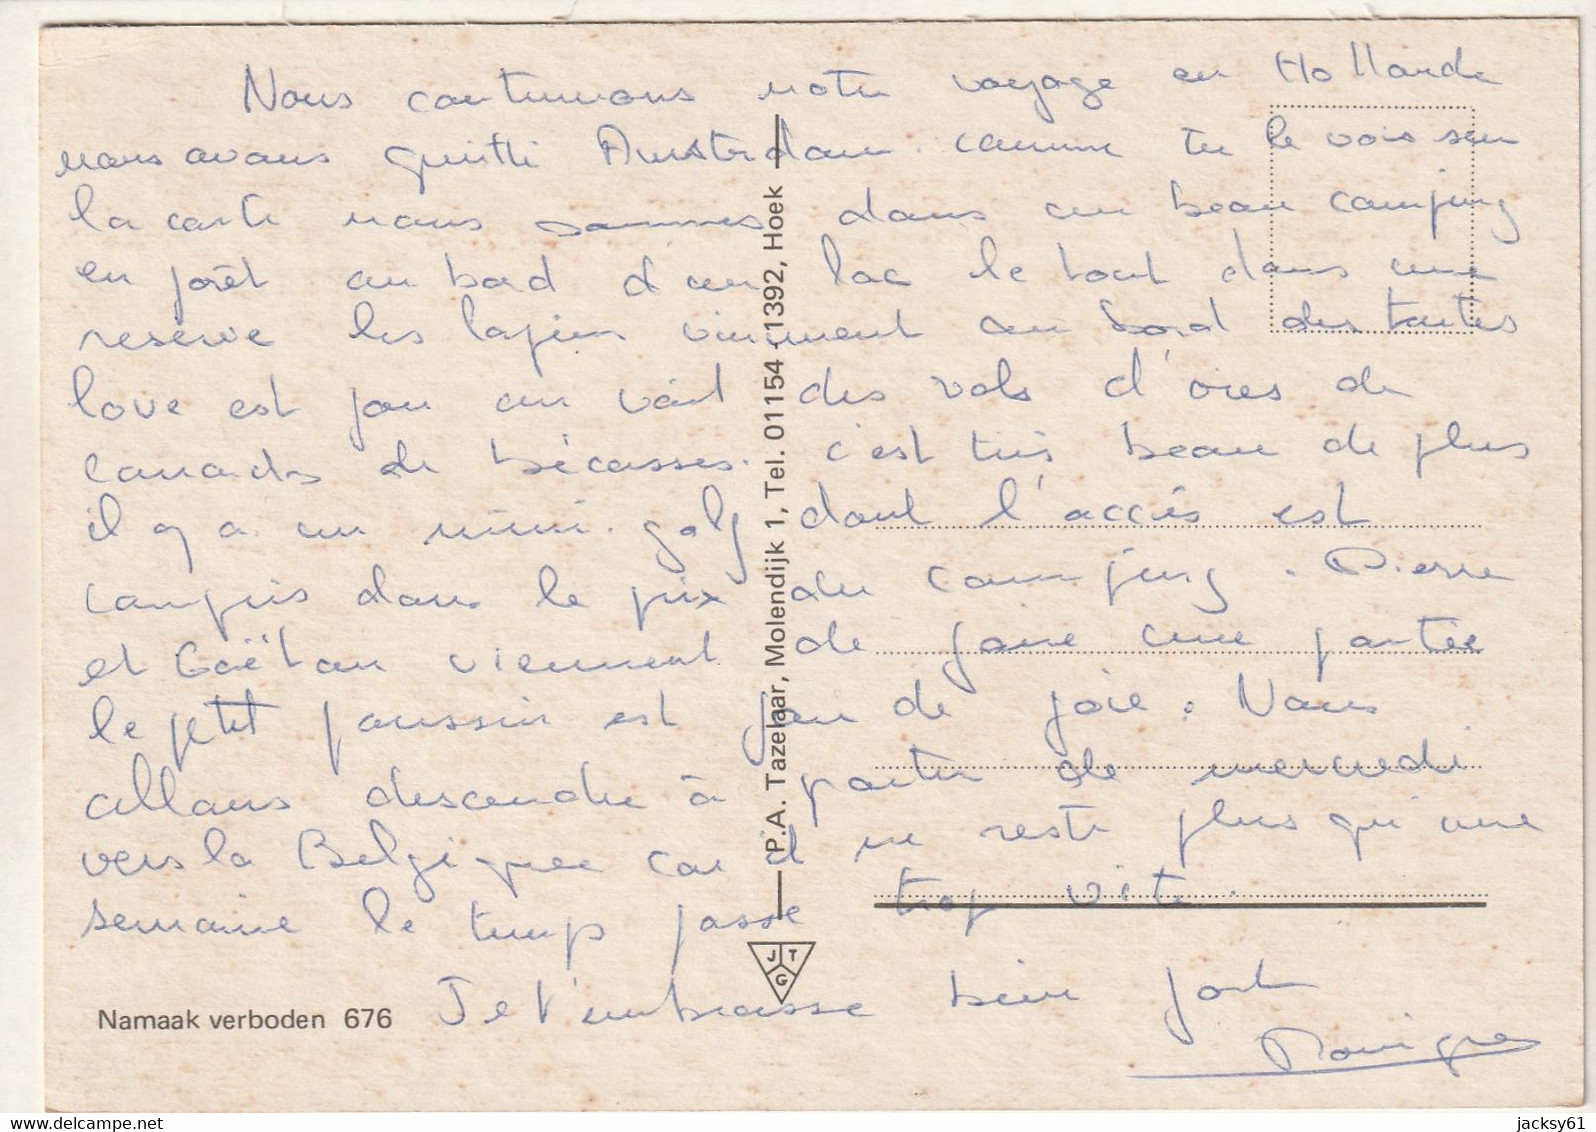 Nous continuons notre voyage en Hollande
nous avons quitté Amsterdam. comme tu le vois sur
la carte nous sommes dans un beau camping
en forêt au bord d'un lac le tout dans une
reserve les lapins viennent au bord des tentes
love est fou on voit des vols d'oies de
canards de bécasses. c'est très beau de plus
il y a un mini-golf dont l'accès est
compris dans le prix du camping. Pierre
et Gaëtan viennent de faire une partie
le petit poussin est fou de joie. Nous
allons descendre à partir de mercredi
vers la Belgique car il ne reste plus qu'une
semaine le temps passe trop vite.
Je t'embrasse bien fort
Monique
P.A. Tazelaar, Molendijk 1, Tel. 01154 - 1392, Hoek
JTG
Namaak verboden 676
www.delcampe.net
jacksy61